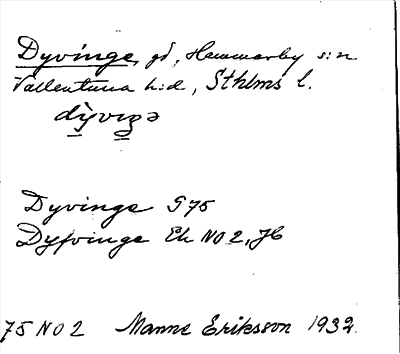 Dyvinge, gd, Hammarby s:n
Vallentuna h:d, Sthlms l.
dỳvıŋə
Dyvinge S75
Dyfvinge Ek NO2, JC
75 NO 2 Manne Eriksson 1932.